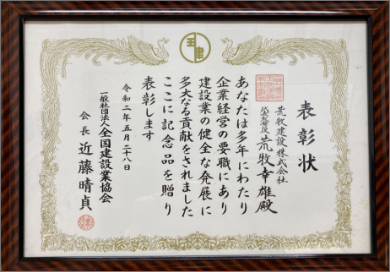 全建
表彰状
荒牧建設株式会社
荒牧幸雄殿
あなたは多年にわたり
企業経営の要職にあり
建設業の健全な発展に
多大なる貢献をされました
ここに記念品を贈り
表彰します
令和二年五月二十八日
一般社団法人全国建設業協会
会長近藤晴貞